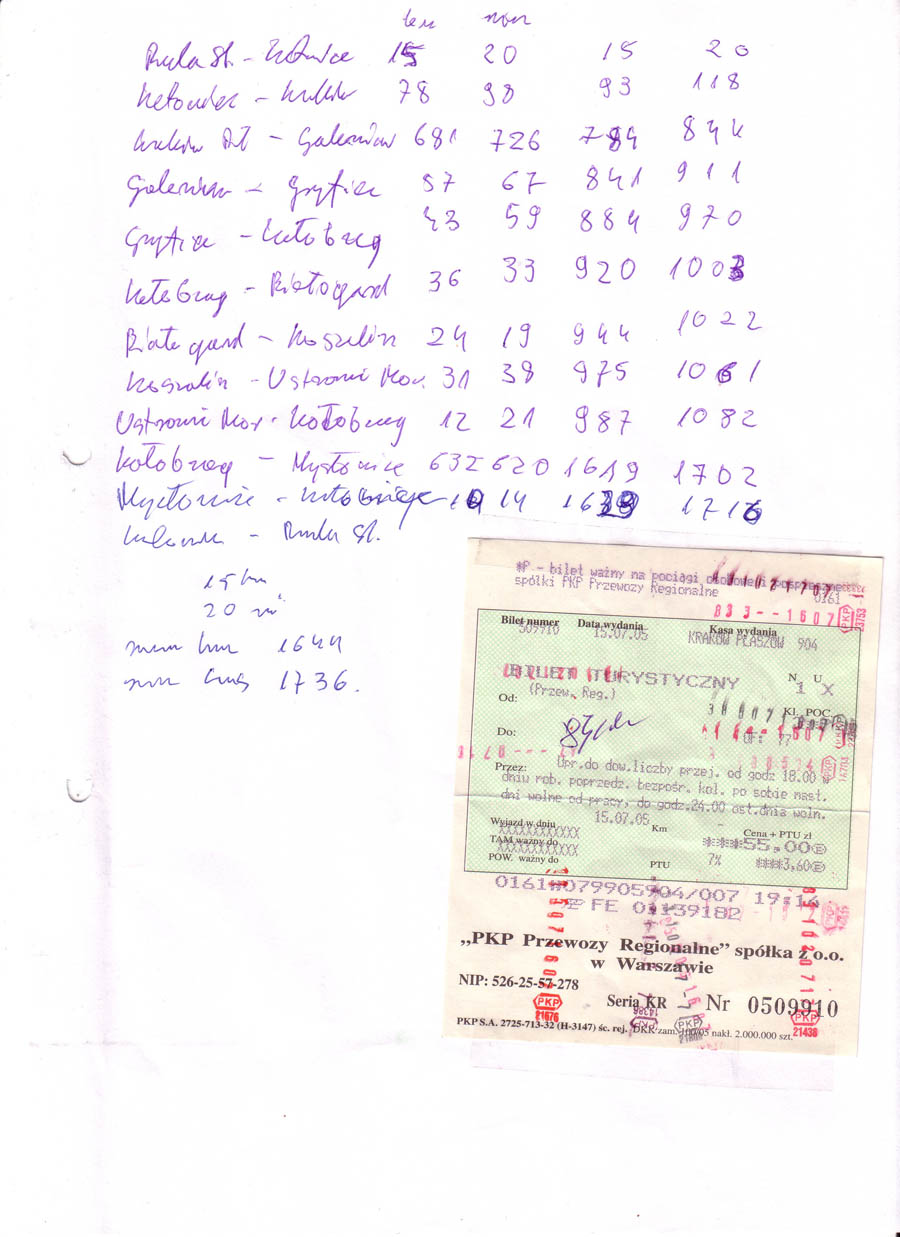 km min
Ruda Śl. - Katowice 15 20 15 20
Katowice - Kraków 78 98 93 118
Kraków Pł - Goleniów 681 726 784 844
Goleniów - Gryfice 57 67 841 911
Gryfice - Kołobrzeg 43 59 884 970
Kołobrzeg - Białogard 36 33 920 1003
Białogard - Koszalin 24 19 944 1022
Koszalin - Ustronie Mor. 31 38 975 1061
Ustronie Mor - Kołobrzeg 12 21 987 1082
Kołobrzeg - Mysłowice 632 620 1619 1702
Mysłowice - Katowice 10 14 1716
Katowice - Ruda Śl.
15 km
20 min
suma km 1644
1736.
*P - bilet ważny na pociągi osobowe i pospieszne
spółki PKP Przewozy Regionalne 0161
833--1607 PKP
Bilet numer Data wydania Kasa wydania
509910 15.07.05 KRAKÓW PŁASZÓW 904
BILET TURYSTYCZNY N U
(Przew. Reg.) 1 X
Od: Kl. POC.
Do: OF: 77
Przez: Upr.do dow.liczby przej. od godz 18.00 w
dniu rob. poprzedz. bezpośr. kol. po sobie nast.
dni wolne od pracy, do godz.24.00 ost.dnia woln.
15.07.05
Wyjazd w dniu Km Cena + PTU zł
XXXXXXXXXXX ***55,00
TAM ważny do
XXXXXXXXXXX
POW. ważny do PTU 7% ****3,60
0161 079905904/007
FE 01139182
„PKP Przewozy Regionalne” spółka z o.o.
w Warszawie
NIP: 526-25-57-278
Seria KR Nr 0509910
PKP 21676
PKP
PKP 21438
PKP S.A. 2725-713-32 (H-3147) śc. rej. DKR zam. 100/05 nakł. 2.000.000 szt.